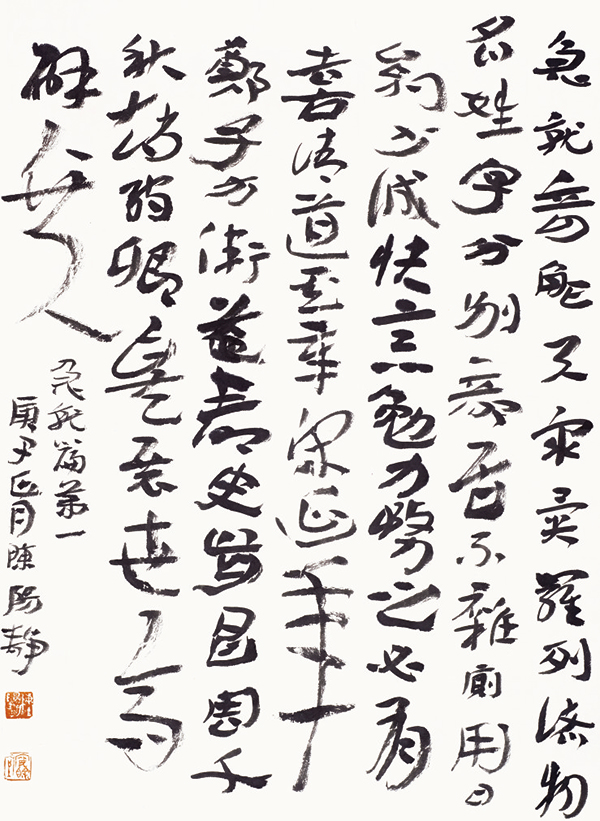 急就奇觚與衆異羅列諸物
名姓字分別部居不雜廁用日
約少誠快意勉力務之必有
憙請道其章宋延年
鄭子方衛益壽史步昌周千
秋趙孺卿爰展世高
辟兵
急就篇第一
庚寅正月陳陽靜